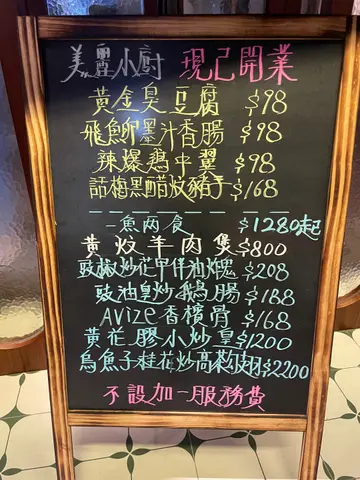 美麗小廚 現已開業
黃金臭豆腐 $98
飛魚卵墨汁香腸 $98
辣爆鷄中翼 $98
話梅黑醋炆豬手 $168
一魚兩食 $1280起
黃炆羊肉煲 $800
豉椒炒花甲伴油 $208
豉油皇炒鵝腸 $188
Avize香檳骨 $168
黃花膠小炒皇 $1200
烏魚子桂花炒高 翅 $2200
不設加一服務費